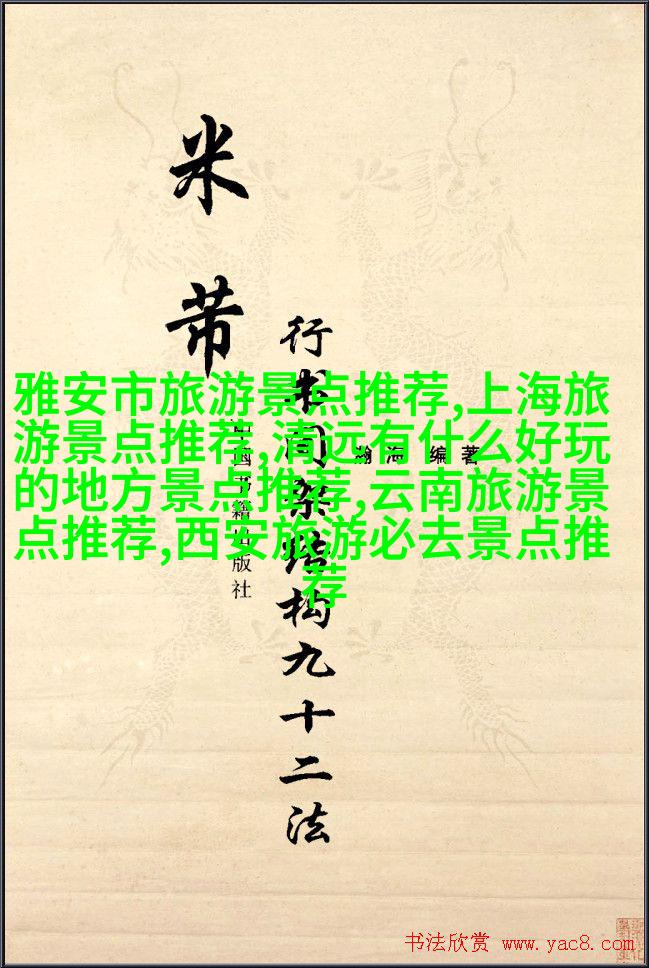 米芾
行书间架结构九十二法
瀚海 编著
中国书籍出版社
雅安市旅游景点推荐,上海旅
游景点推荐,清远有什么好玩
的地方景点推荐,云南旅游景
点推荐,西安旅游必去景点推
荐
书法欣赏 www.yac8.com